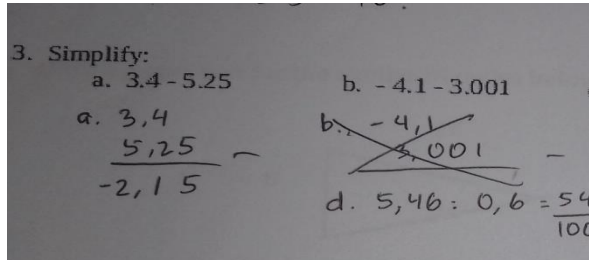 3. Simplify:
a. 3.4 - 5.25
b. - 4.1 - 3.001
a. 3,4
5,25 -
-2,15
b. - 4,1
3,001 -
d. 5,46 : 0,6 = 54
100